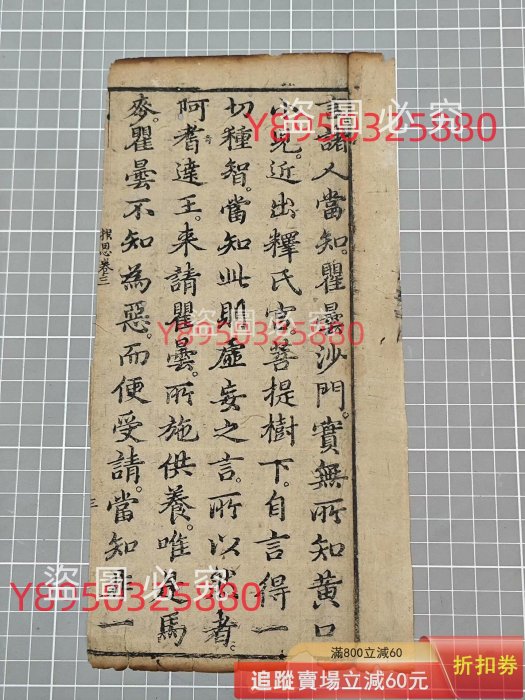 言諸人當知。瞿曇沙門。實無所知黃口
小兒。近出釋氏宮。菩提樹下。自言得一
切種智。當知此則虛妄之言。所以然者。
阿耆達王。来請瞿曇。所施供養。唯是馬
麥。瞿曇不知為惡。而便受請。當知非一
報恩卷三
三
盜圖必究
Y8950325880
Y8950325880
盜圖必究
Y8950325880
滿800立減60
追蹤賣場立減60元
折扣券